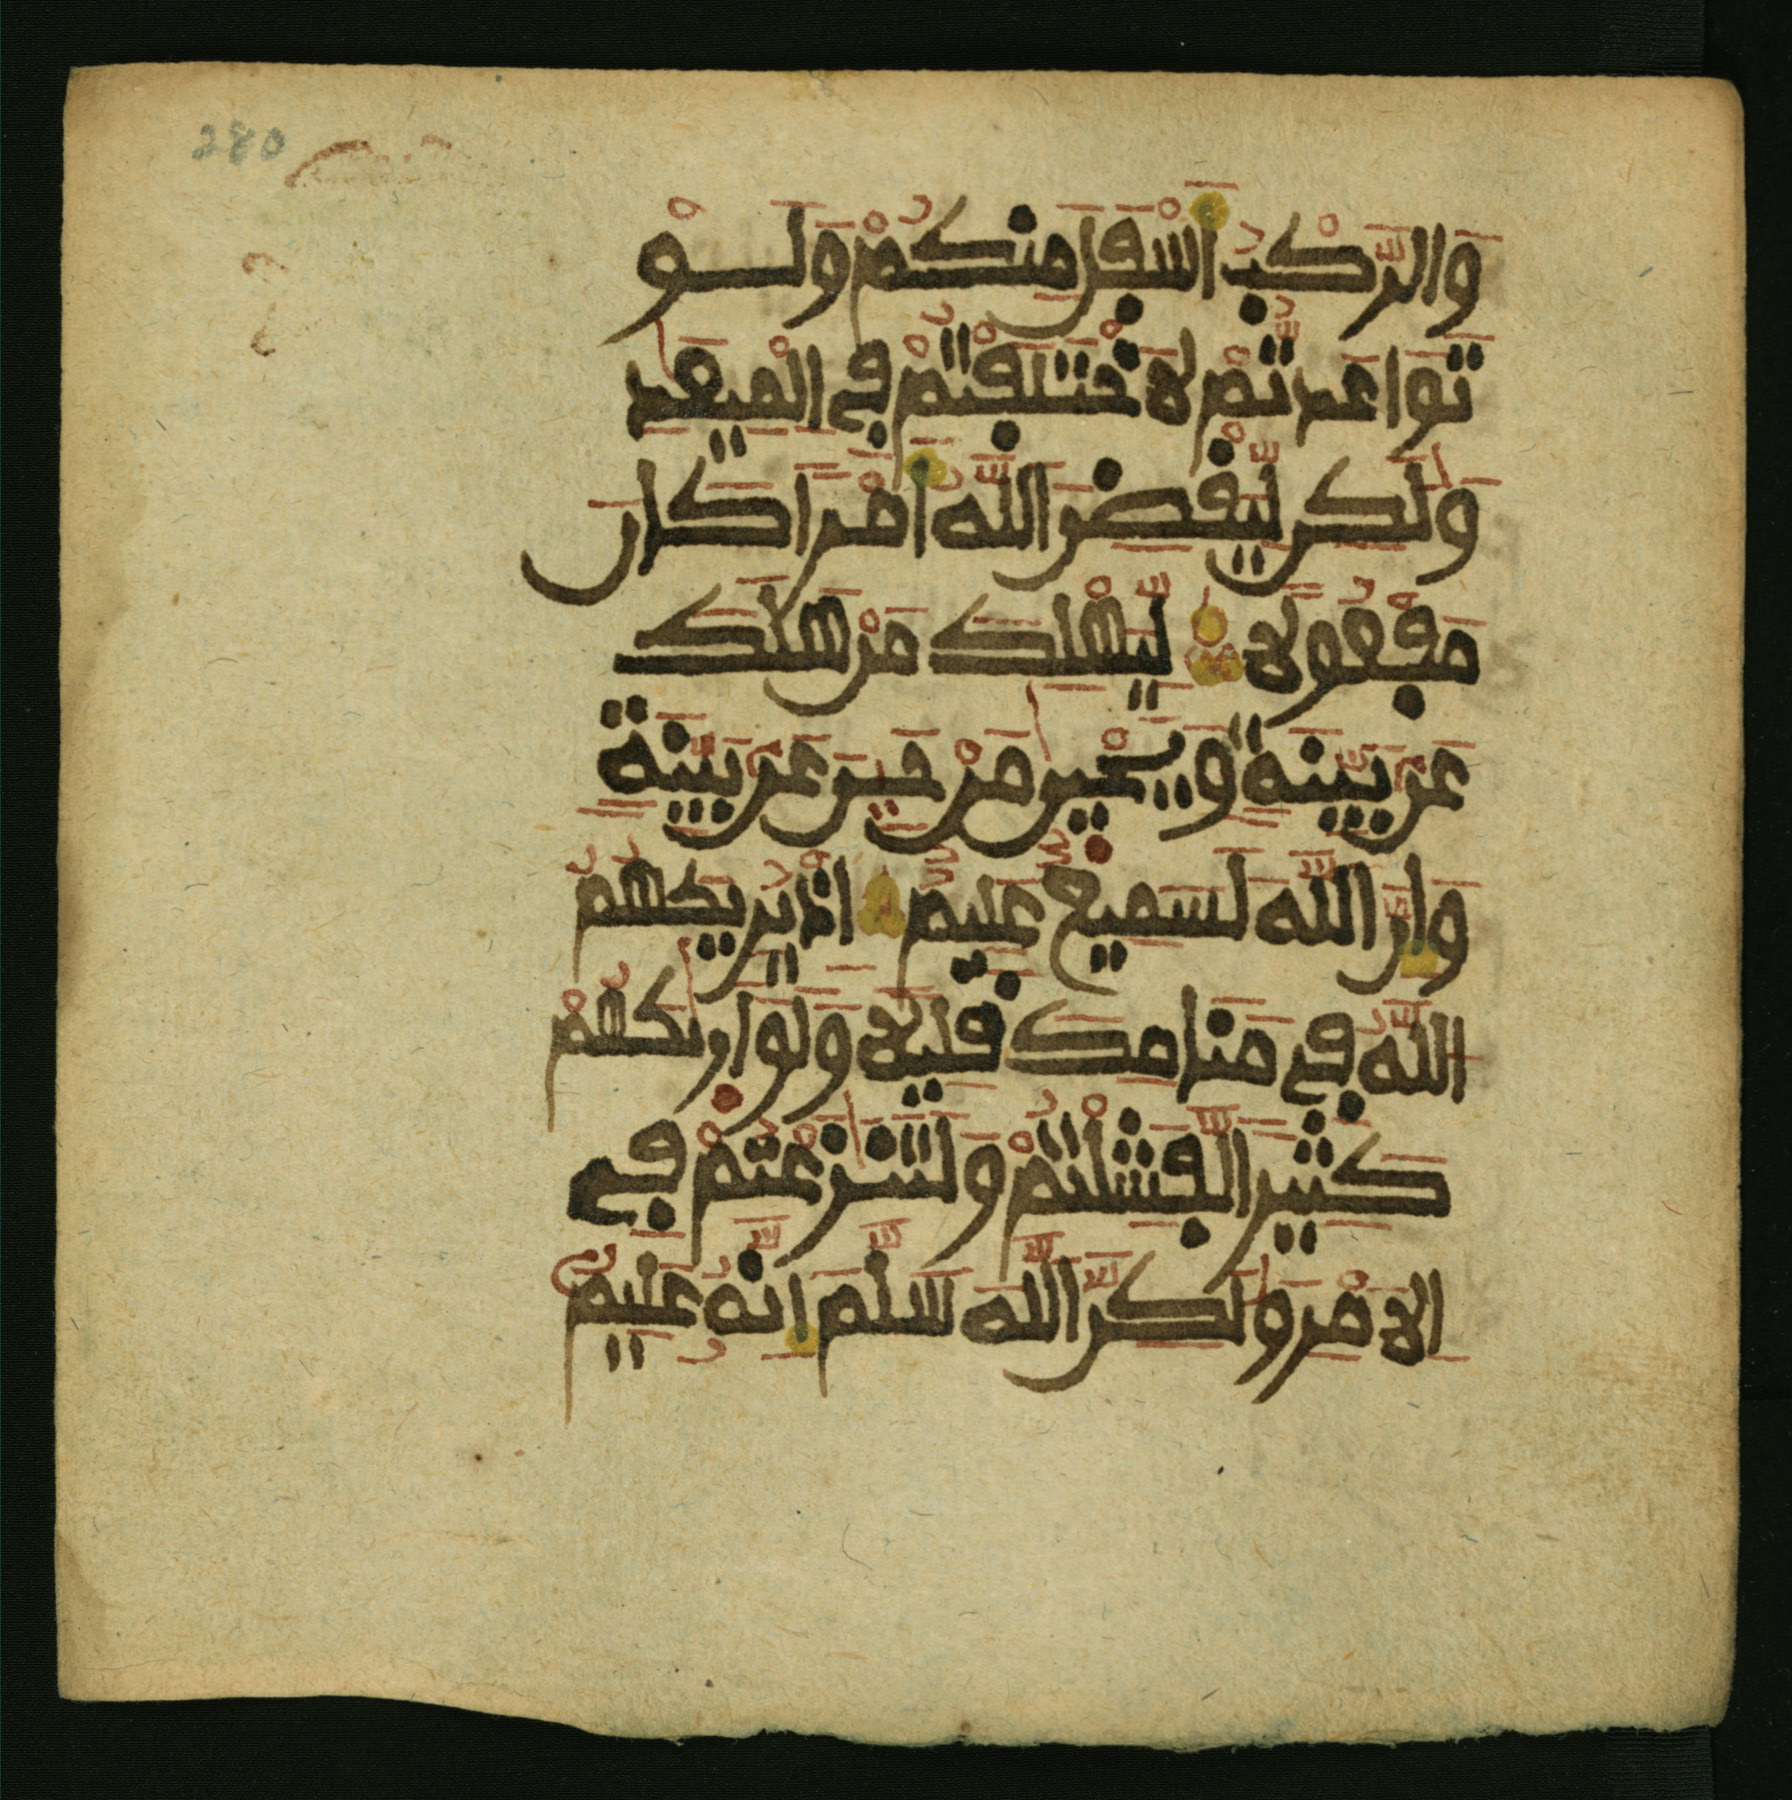 280
وَالرَّكْبُ أَسْفَلَ مِنكُمْ وَلَوْ
تَوَاعَدتُّمْ لَاخْتَلَفْتُمْ فِي الْمِيعَٰدِ
وَلَٰكِن لِّيَقْضِيَ اللَّهُ أَمْرًا كَانَ
مَفْعُولًا لِّيَهْلِكَ مَنْ هَلَكَ
عَنۢ بَيِّنَةٍ وَيَحْيَىٰ مَنْ حَيِيَ عَنۢ بَيِّنَةٍ
وَإِنَّ اللَّهَ لَسَمِيعٌ عَلِيمٌ إِذْ يُرِيكَهُمُ
اللَّهُ فِي مَنَامِكَ قَلِيلًا وَلَوْ أَرَىٰكَهُمْ
كَثِيرًا لَّفَشِلْتُمْ وَلَتَنَٰزَعْتُمْ فِي
الْأَمْرِ وَلَٰكِنَّ اللَّهَ سَلَّمَ إِنَّهُ عَلِيمٌ